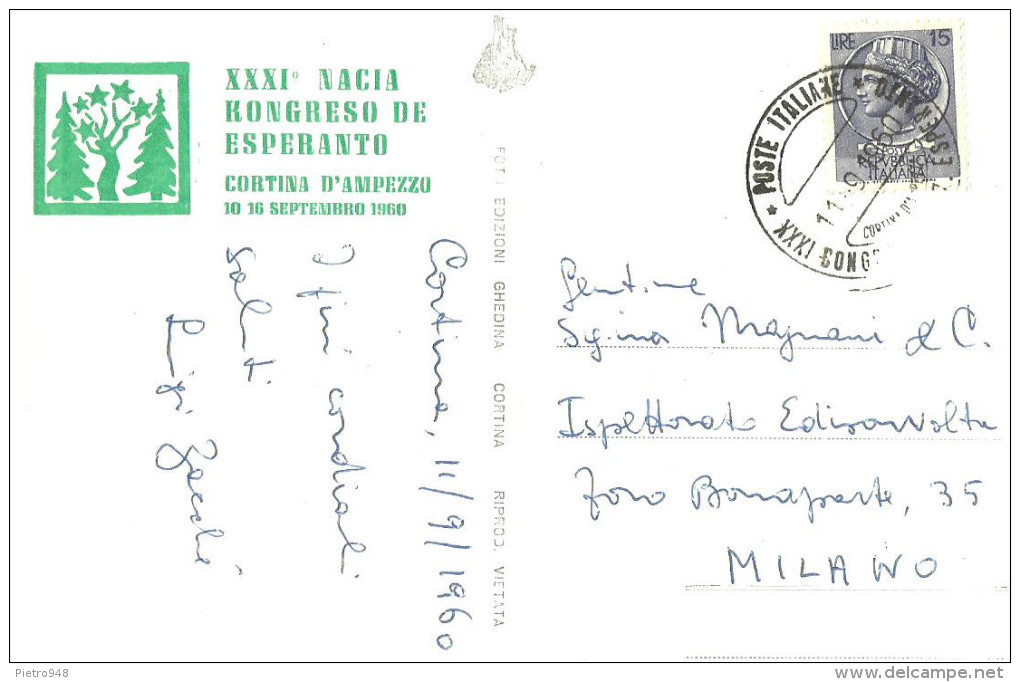 XXXI° NACIA
KONGRESO DE
ESPERANTO
CORTINA D'AMPEZZO
10 16 SEPTEMBRO 1960
Cortina, 11/9/1960
I più cordiali
saluti
Luigi
FOTO EDIZIONI GHEDINA CORTINA RIPROD. VIETATA
LIRE 15
POSTE
REPVBBLICA
ITALIANA
★ POSTE ITALIANE ★
XXXI CONG
Gentime
Sig.ina Magnani & C.
Ispettorato Edisonvolta
Foro Bonaparte, 35
MILANO
Pietro948
www.delcampe.net